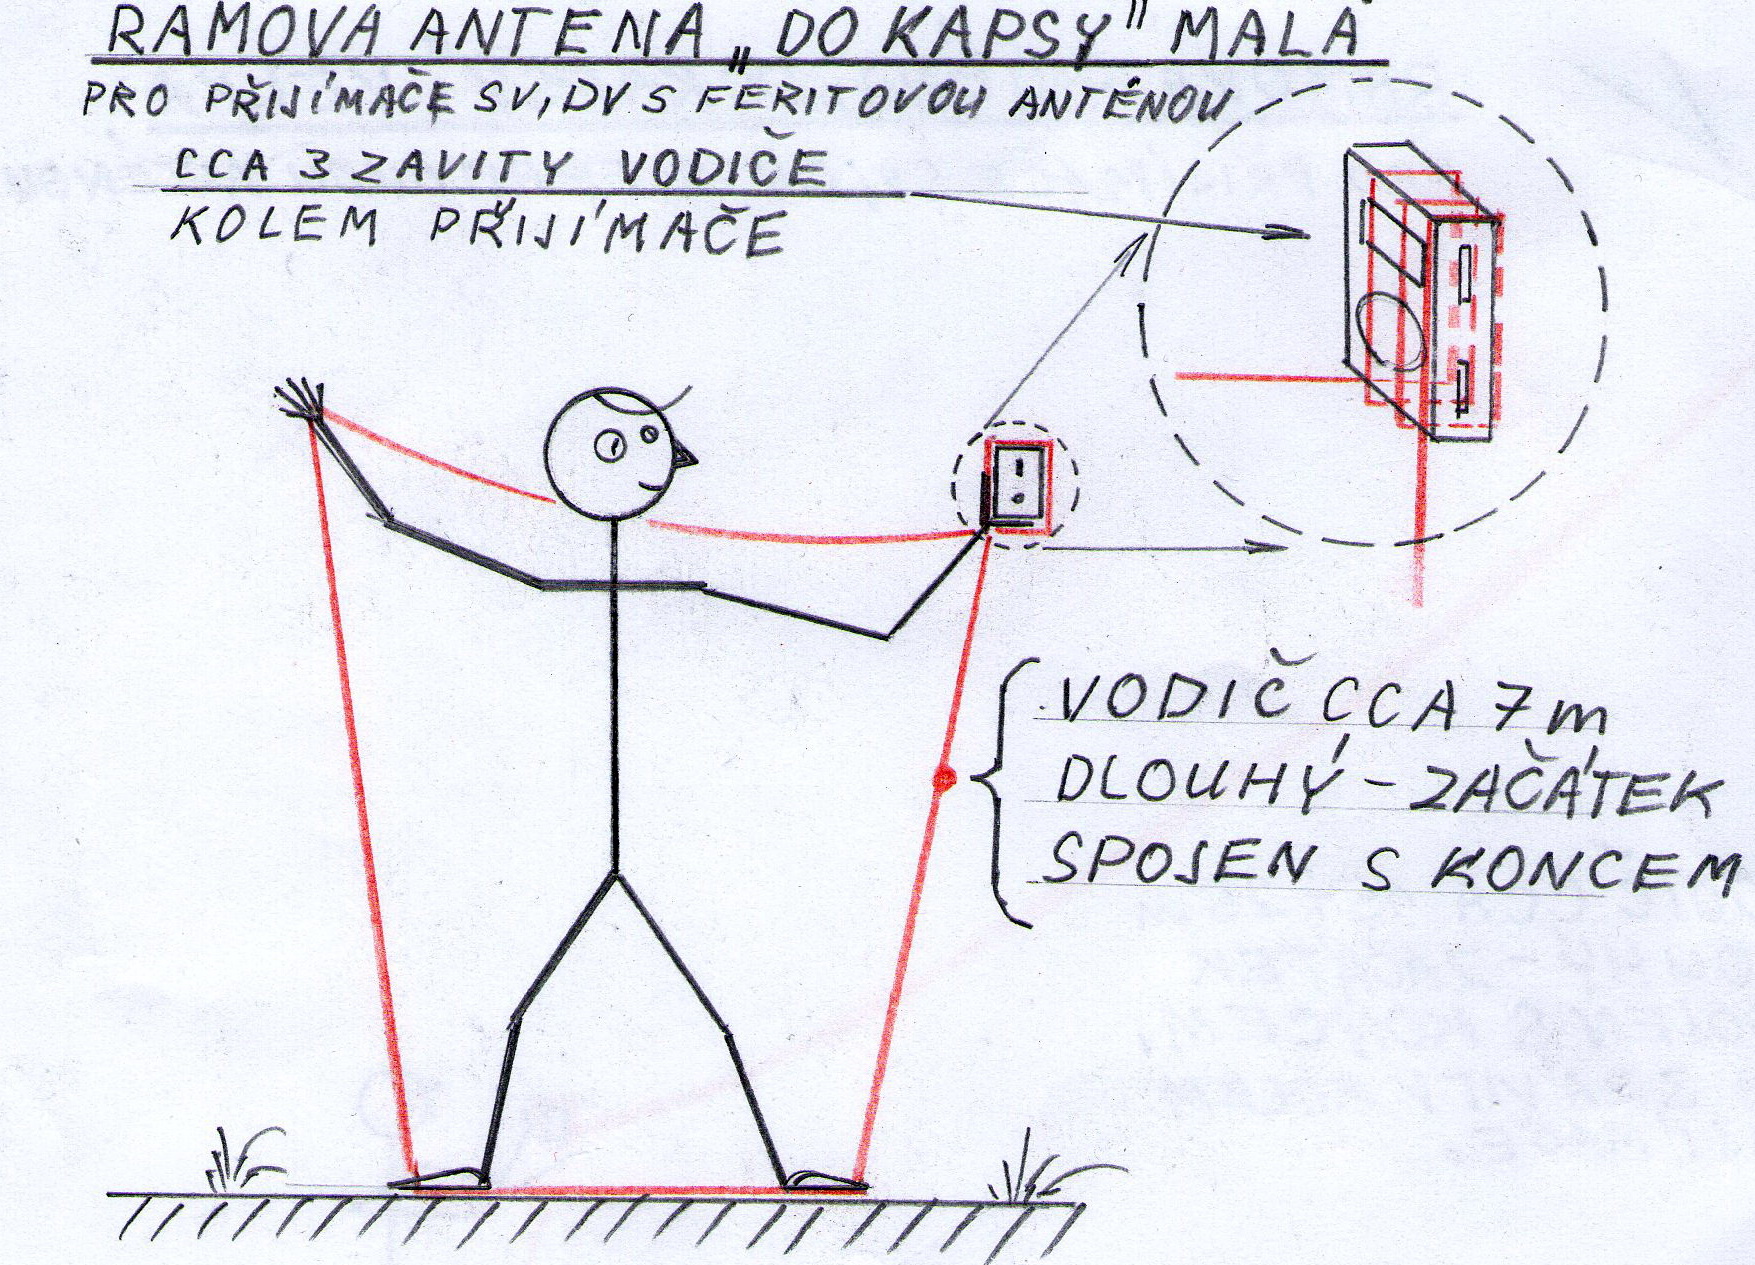 RÁMOVÁ ANTÉNA „DO KAPSY" MALÁ
PRO PŘIJÍMAČE SV, DV S FERITOVOU ANTÉNOU
CCA 3 ZAVITY VODIČE
KOLEM PŘIJÍMAČE
VODIČ CCA 7m
DLOUHÝ - ZAČÁTEK
SPOJEN S KONCEM